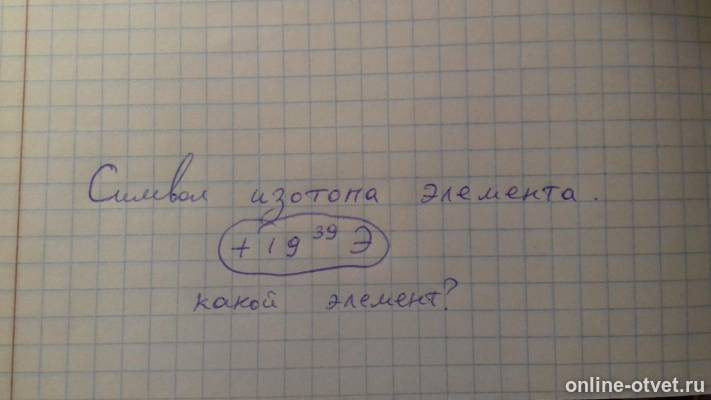 Символ изотопа элемента.
+19 39 Э
какой элемент?
online-otvet.ru